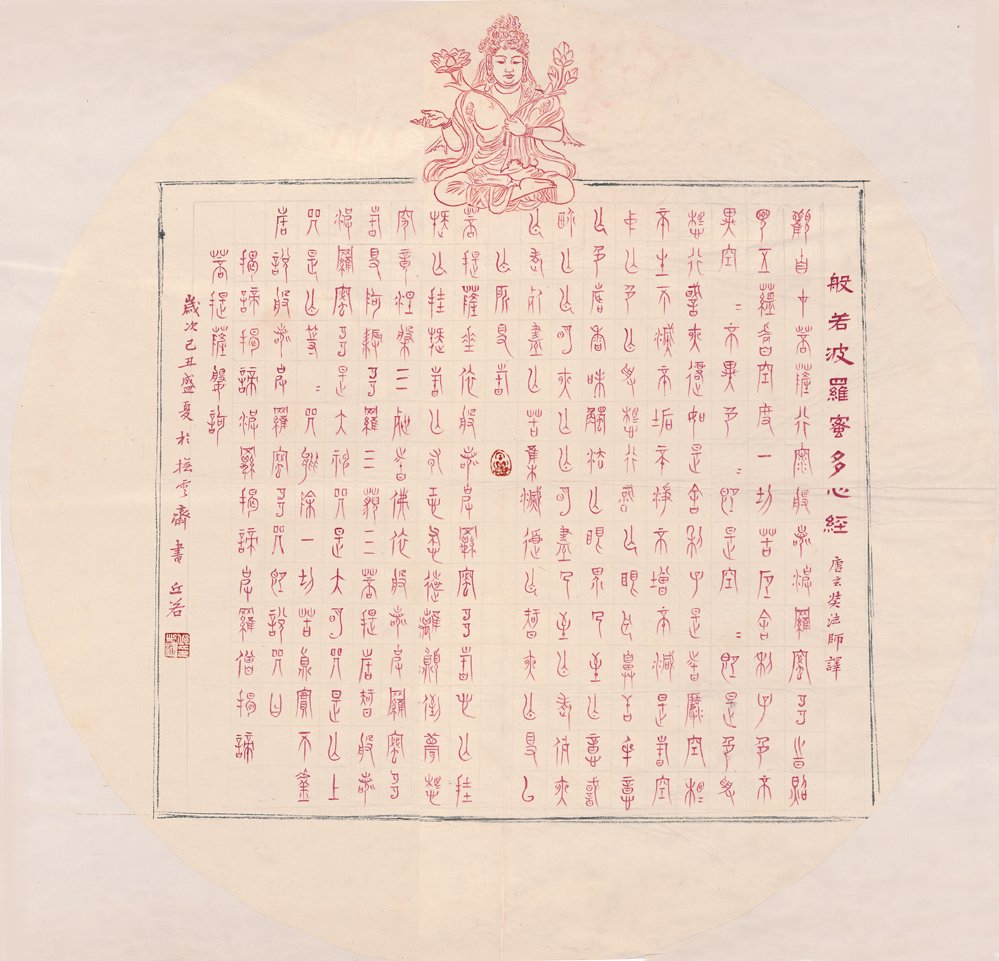 般若波羅蜜多心經 唐玄奘法師譯
觀自在菩薩行深般若波羅蜜多時照
見五蘊皆空度一切苦厄舍利子色不
異空〻不異色〻即是空〻即是色受
想行識亦復如是舍利子是諸法空相
不生不滅不垢不淨不增不減是故空
中無色無受想行識無眼耳鼻舌身意
無色聲香味觸法無眼界乃至無意識
界無無明亦無無明盡乃至無老死亦
無老死盡無苦集滅道無智亦無得以
無所得故
菩提薩埵依般若波羅蜜多故心無罣
礙無罣礙故無有恐怖遠離顛倒夢想
究竟涅槃三世諸佛依般若波羅蜜多
故得阿耨多羅三藐三菩提故知般若
波羅蜜多是大神咒是大明咒是無上
咒是無等〻咒能除一切苦真實不虛
故說般若波羅蜜多咒即說咒曰
揭諦揭諦波羅揭諦波羅僧揭諦
菩提薩婆訶
歲次己丑盛夏於撫雲齋書 丘若